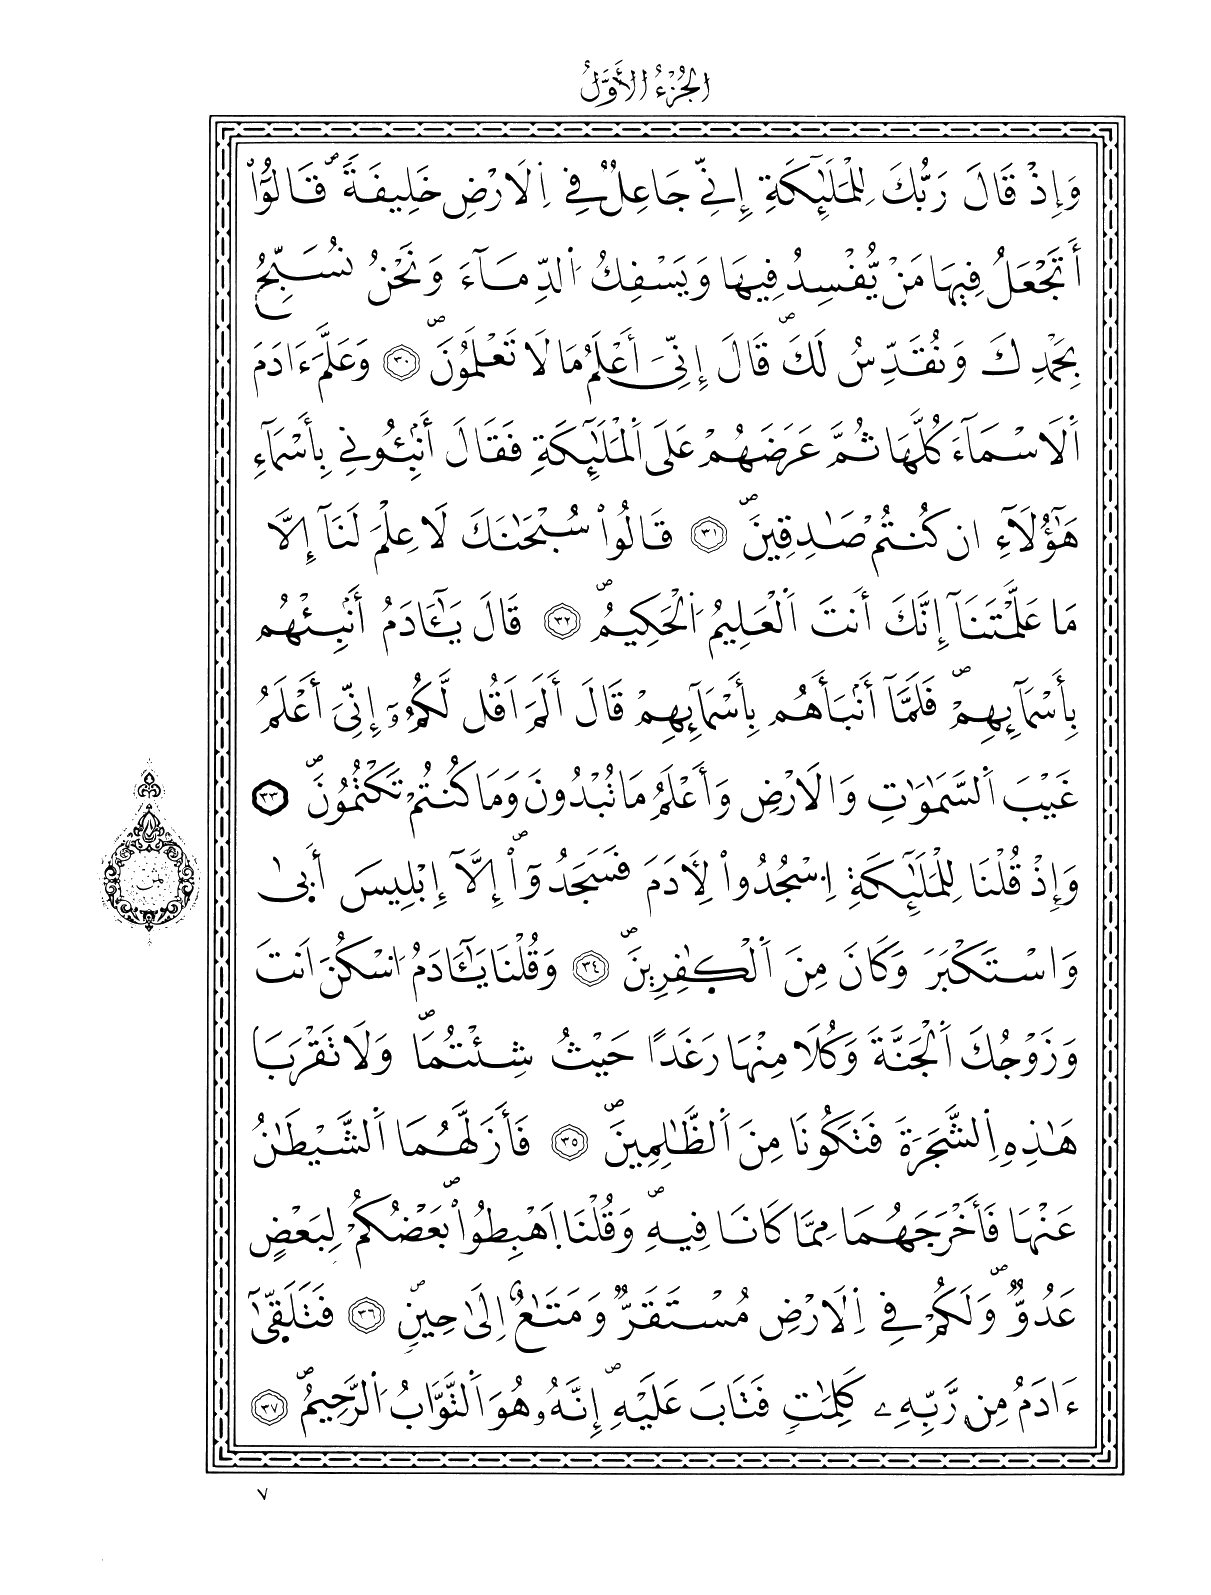 الجُزْءُ الأَوَّلُ
وَإِذْ قَالَ رَبُّكَ لِلْمَلَٰٓئِكَةِ إِنِّے جَاعِلٞ فِے اِ۬لَارْضِ خَلِيفَةٗۖ قَالُوٓاْ
أَتَجْعَلُ فِيهَا مَنْ يُّفْسِدُ فِيهَا وَيَسْفِكُ اُ۬لدِّمَآءَ وَنَحْنُ نُسَبِّحُ
بِحَمْدِكَ وَنُقَدِّسُ لَكَۖ قَالَ إِنِّيَ أَعْلَمُ مَا لَا تَعْلَمُونَۖ ٣٠ وَعَلَّمَ ءَادَمَ
اَ۬لَاسْمَآءَ كُلَّهَا ثُمَّ عَرَضَهُمْ عَلَى اَ۬لْمَلَٰٓئِكَةِ فَقَالَ أَنۢبِـُٔونِے بِأَسْمَآءِ
هَٰٓؤُلَآءِ ان كُنتُمْ صَٰدِقِينَۖ ٣١ قَالُواْ سُبْحَٰنَكَ لَا عِلْمَ لَنَآ إِلَّا
مَا عَلَّمْتَنَآ إِنَّكَ أَنتَ اَ۬لْعَلِيمُ اُ۬لْحَكِيمُۖ ٣٢ قَالَ يَٰٓـَٔادَمُ أَنۢبِئْهُم
بِأَسْمَآئِهِمْۖ فَلَمَّآ أَنۢبَأَهُم بِأَسْمَآئِهِمْ قَالَ أَلَمَ اَقُل لَّكُمُۥٓ إِنِّيَ أَعْلَمُ
غَيْبَ اَ۬لسَّمَٰوَٰتِ وَالَارْضِ وَأَعْلَمُ مَا تُبْدُونَ وَمَا كُنتُمْ تَكْتُمُونَۖ ٣٣
وَإِذْ قُلْنَا لِلْمَلَٰٓئِكَةِ اِ۟سْجُدُواْ لِأٓدَمَ فَسَجَدُوٓاْۖ إِلَّآ إِبْلِيسَ أَبىٰ
وَاسْتَكْبَرَ وَكَانَ مِنَ اَ۬لْكٰ۪فِرِينَۖ ٣٤ وَقُلْنَا يَٰٓـَٔادَمُ اُ۟سْكُنَ اَنتَ
وَزَوْجُكَ اَ۬لْجَنَّةَ وَكُلَا مِنْهَا رَغَداً حَيْثُ شِئْتُمَاۖ وَلَا تَقْرَبَا
هَٰذِهِ اِ۬لشَّجَرَةَ فَتَكُونَا مِنَ اَ۬لظَّٰلِمِينَۖ ٣٥ فَأَزَلَّهُمَا اَ۬لشَّيْطَٰنُ
عَنْهَا فَأَخْرَجَهُمَا مِمَّا كَانَا فِيهِۖ وَقُلْنَا اَ۪هْبِطُواْۖ بَعْضُكُمْ لِبَعْضٍ
عَدُوّٞۖ وَلَكُمْ فِے اِ۬لَارْضِ مُسْتَقَرّٞ وَمَتَٰعٌ إِلَىٰ حِينٖۖ ٣٦ فَتَلَقّ۪ىٰٓ
ءَادَمُ مِن رَّبِّهِۦ كَلِمَٰتٖ فَتَابَ عَلَيْهِۖ إِنَّهُۥ هُوَ اَ۬لتَّوَّابُ اُ۬لرَّحِيمُۖ ٣٧
ثمن
٧